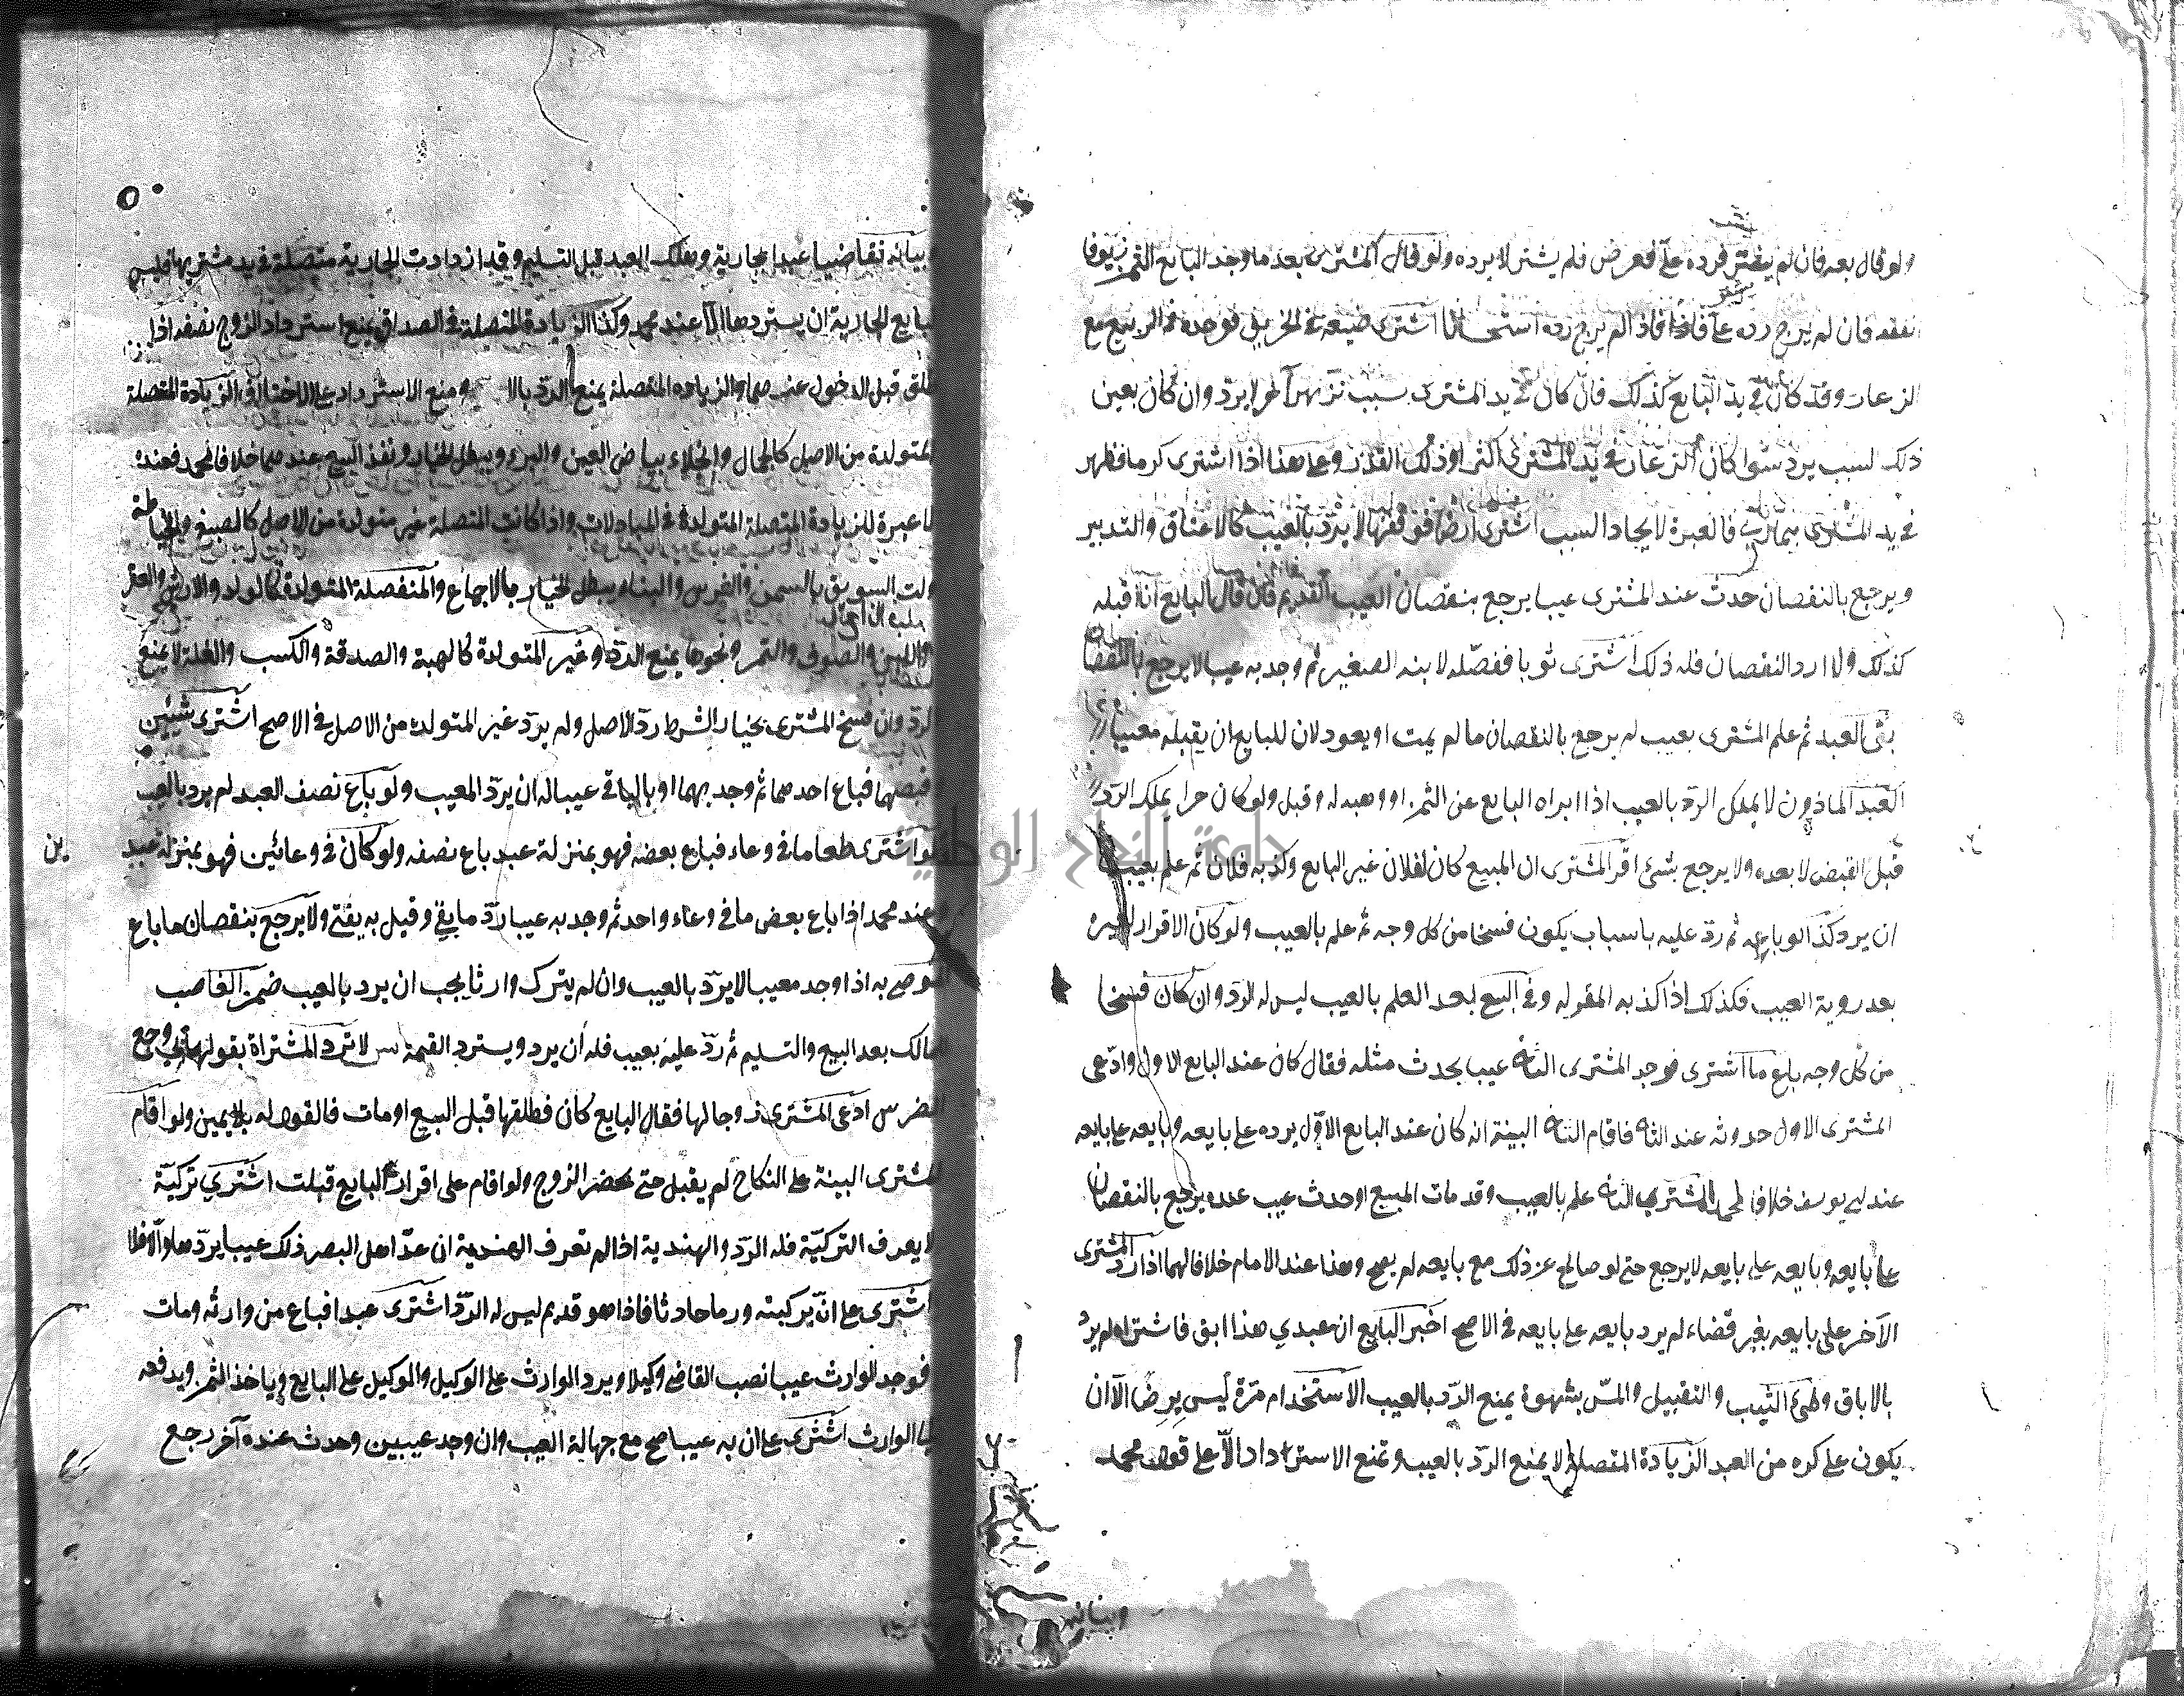 ولو قال بعه فان لم يشتر فرده علي فعرض فلم يشتر لا يرده ولو قال المشتري بعد ما وجد البايع الثمن زيوفا
انفقه فان لم يرج رده علي فاذا لم يرج رده استحسانا اشترى ضيعة في الخريف فوجدها في الربيع مع
الزعار وقد كان في يد البايع كذلك فان كان في يد المشترى بسبب نز نهر آخر لا يرد وان كان بعين
ذلك السبب يرد سوا كان الز عار في يد المشتري اكثر او ذلك القدر وعلى هذا اذا اشترى كرما فظهر
في يد المشترى فالعبرة لايجاد السبب اشترى ارضا فوقفها لا يرد بالعيب كالاعتاق والتدبير
ويرجع بالنقصان حدث عند المشترى عيب يرجع بنقصان العيب القديم فان قال البايع انا اقبله
كذلك ولا ارد النقصان فله ذلك اشترى ثوبا ففصّله لابنه الصغير ثم وجد به عيبا لا يرجع بالنقصان
العبد ثم علم المشترى بعيب لم يرجع بالنقصان ما لم يمت او يعود لان للبايع ان يقبله معيبا
العبد الماذون لا يملك الردّ بالعيب اذا ابراه البايع عن الثمن او وهبه له وقبل ولو كان حرا يملك الردّ
قبل القبض لا بعده ولا يرجع بشئ اقر المشترى ان المبيع كان لفلان غير البايع وكذبه فلان ثم علم بعيب
ان يرد كذا لو باعه ثم ردّ عليه باسباب يكون فسخا من كل وجه ثم علم بالعيب ولو كان الاقرار لغيره
بعد روية العيب فكذلك اذا كذبه المقر له وفي البيع بعد العلم بالعيب ليس له الرد وان كان فسخا
من كل وجه باع ما اشترى فوجد المشترى الثاني عيبا يحدث مثله فقال كان عند البايع الاول وادّعى
المشترى الاول حدوثه عند الثاني فاقام الثاني البينة انه كان عند البايع الاوّل يرده على بايعه وبايعه على بايعه
عند ابي يوسف خلافا لمحمد المشتري الثاني علم بالعيب وقد مات المبيع او حدث عيب عنده يرجع بالنقصان
على بايعه وبايعه على بايعه لا يرجع حتى لو صالح عن ذلك مع بايعه لم يصح وهذا عند الامام خلافا لهما اذا رد المشترى
الآخر على بايعه بغير قضاء لم يرد بايعه على بايعه في الاصح اخبر البايع ان عبدي هذا ابق فاشتراه لم يرد
بالاباق وطئ الثيب والتقبيل والمسّ بشهوة يمنع الردّ بالعيب الاستخدام مرّة ليس برضًا الا ان
يكون على كره من العبد الزيادة المتصلة لا يمنع الردّ بالعيب وتمنع الاسترداد الاّ على قول محمد
وبيانه
٥٠
بيانه تقاضيا عبدا بجارية وهلك العبد قبل التسليم وقد ازدادت الجارية متصلة في يد مشتريها فليس
لبايع الجارية ان يستردها الا عند محمد وكذا الزيادة المتصلة في الصداق يمنع استرداد الزوج نصفه اذا
طلق قبل الدخول عندهما والزيادة المتصلة يمنع الردّ بالا ومنع الاسترداد على الاختلاف الزيادة المتصلة
المتولدة من الاصل كالجمال وانجلاء بياض العين والبرء ويبطل الخيار ونفذ البيع عندهما خلافا لمحمد فعنده
لا عبرة للزيادة المتصلة المتولدة في المبادلات واذا كانت المتصلة غير متولدة من الاصل كالصبغ والخياطة
ولت السويق بالسمن والغرس والبناء يبطل الخيار بالاجماع والمنفصلة المتولدة كالولد والارش والعقر
واللبن والصوف والثمر ونحوها يمنع الردّ وغير المتولدة كالهبة والصدقة والكسب والغلة لا يمنع
الردّ وان فسخ المشترى بخيار الشرط ردّ الاصل ولم يردّ غير المتولدة من الاصل في الاصح اشترى شيئين
فقبضهما فباع احدهما ثم وجد بهما او بالباقي عيبا له ان يردّ المعيب ولو باع نصف العبد لم يرد بالعيب
لو اشترى طعاما في وعاء فباع بعضه فهو بمنزلة عبد باع نصفه ولو كان في وعائين فهو بمنزلة عبدين
وعند محمد اذا باع بعض ما في وعاء واحد ثم وجد به عيبا ردّ ما بقي وقيل به يفتى ولا يرجع بنقصان ما باع
الموصى به اذا وجد معيبا لا يردّ بالعيب وان لم يترك وارثا يجب ان يرد بالعيب ضمن الغاصب
المالك بعد البيع والتسليم ثم ردّ عليه بعيب فله أن يرد ويسترد القيمة س لا ترد المشتراة بقولها بي وجع
الضرس ادعى المشترى زوجا لها فقال البايع كان فطلقها قبل البيع او مات فالقول له بلا يمين ولو اقام
المشترى البينة على النكاح لم يقبل حتى يحضر الزوج ولو اقام على اقرار البايع قبلت اشتري تركيّة
لا يعرف التركيّة فله الردّ والهندية اذا لم تعرف الهندية ان عدّ اهل البصر ذلك عيبا يردّها والّا فلا
اشترى على انّ بركبته ورما حادثا فاذا هو قديم ليس له الردّ اشترى عبدا فباع من وارثه ومات
فوجد الوارث عيبا نصب القاضي وكيلا ويرد الوارث على الوكيل والوكيل على البايع وياخذ الثمن ويدفعه
الى الوارث اشترى على ان به عيبا صح مع جهالة العيب وان وجد عيبين وحدث عنده آخر رجع